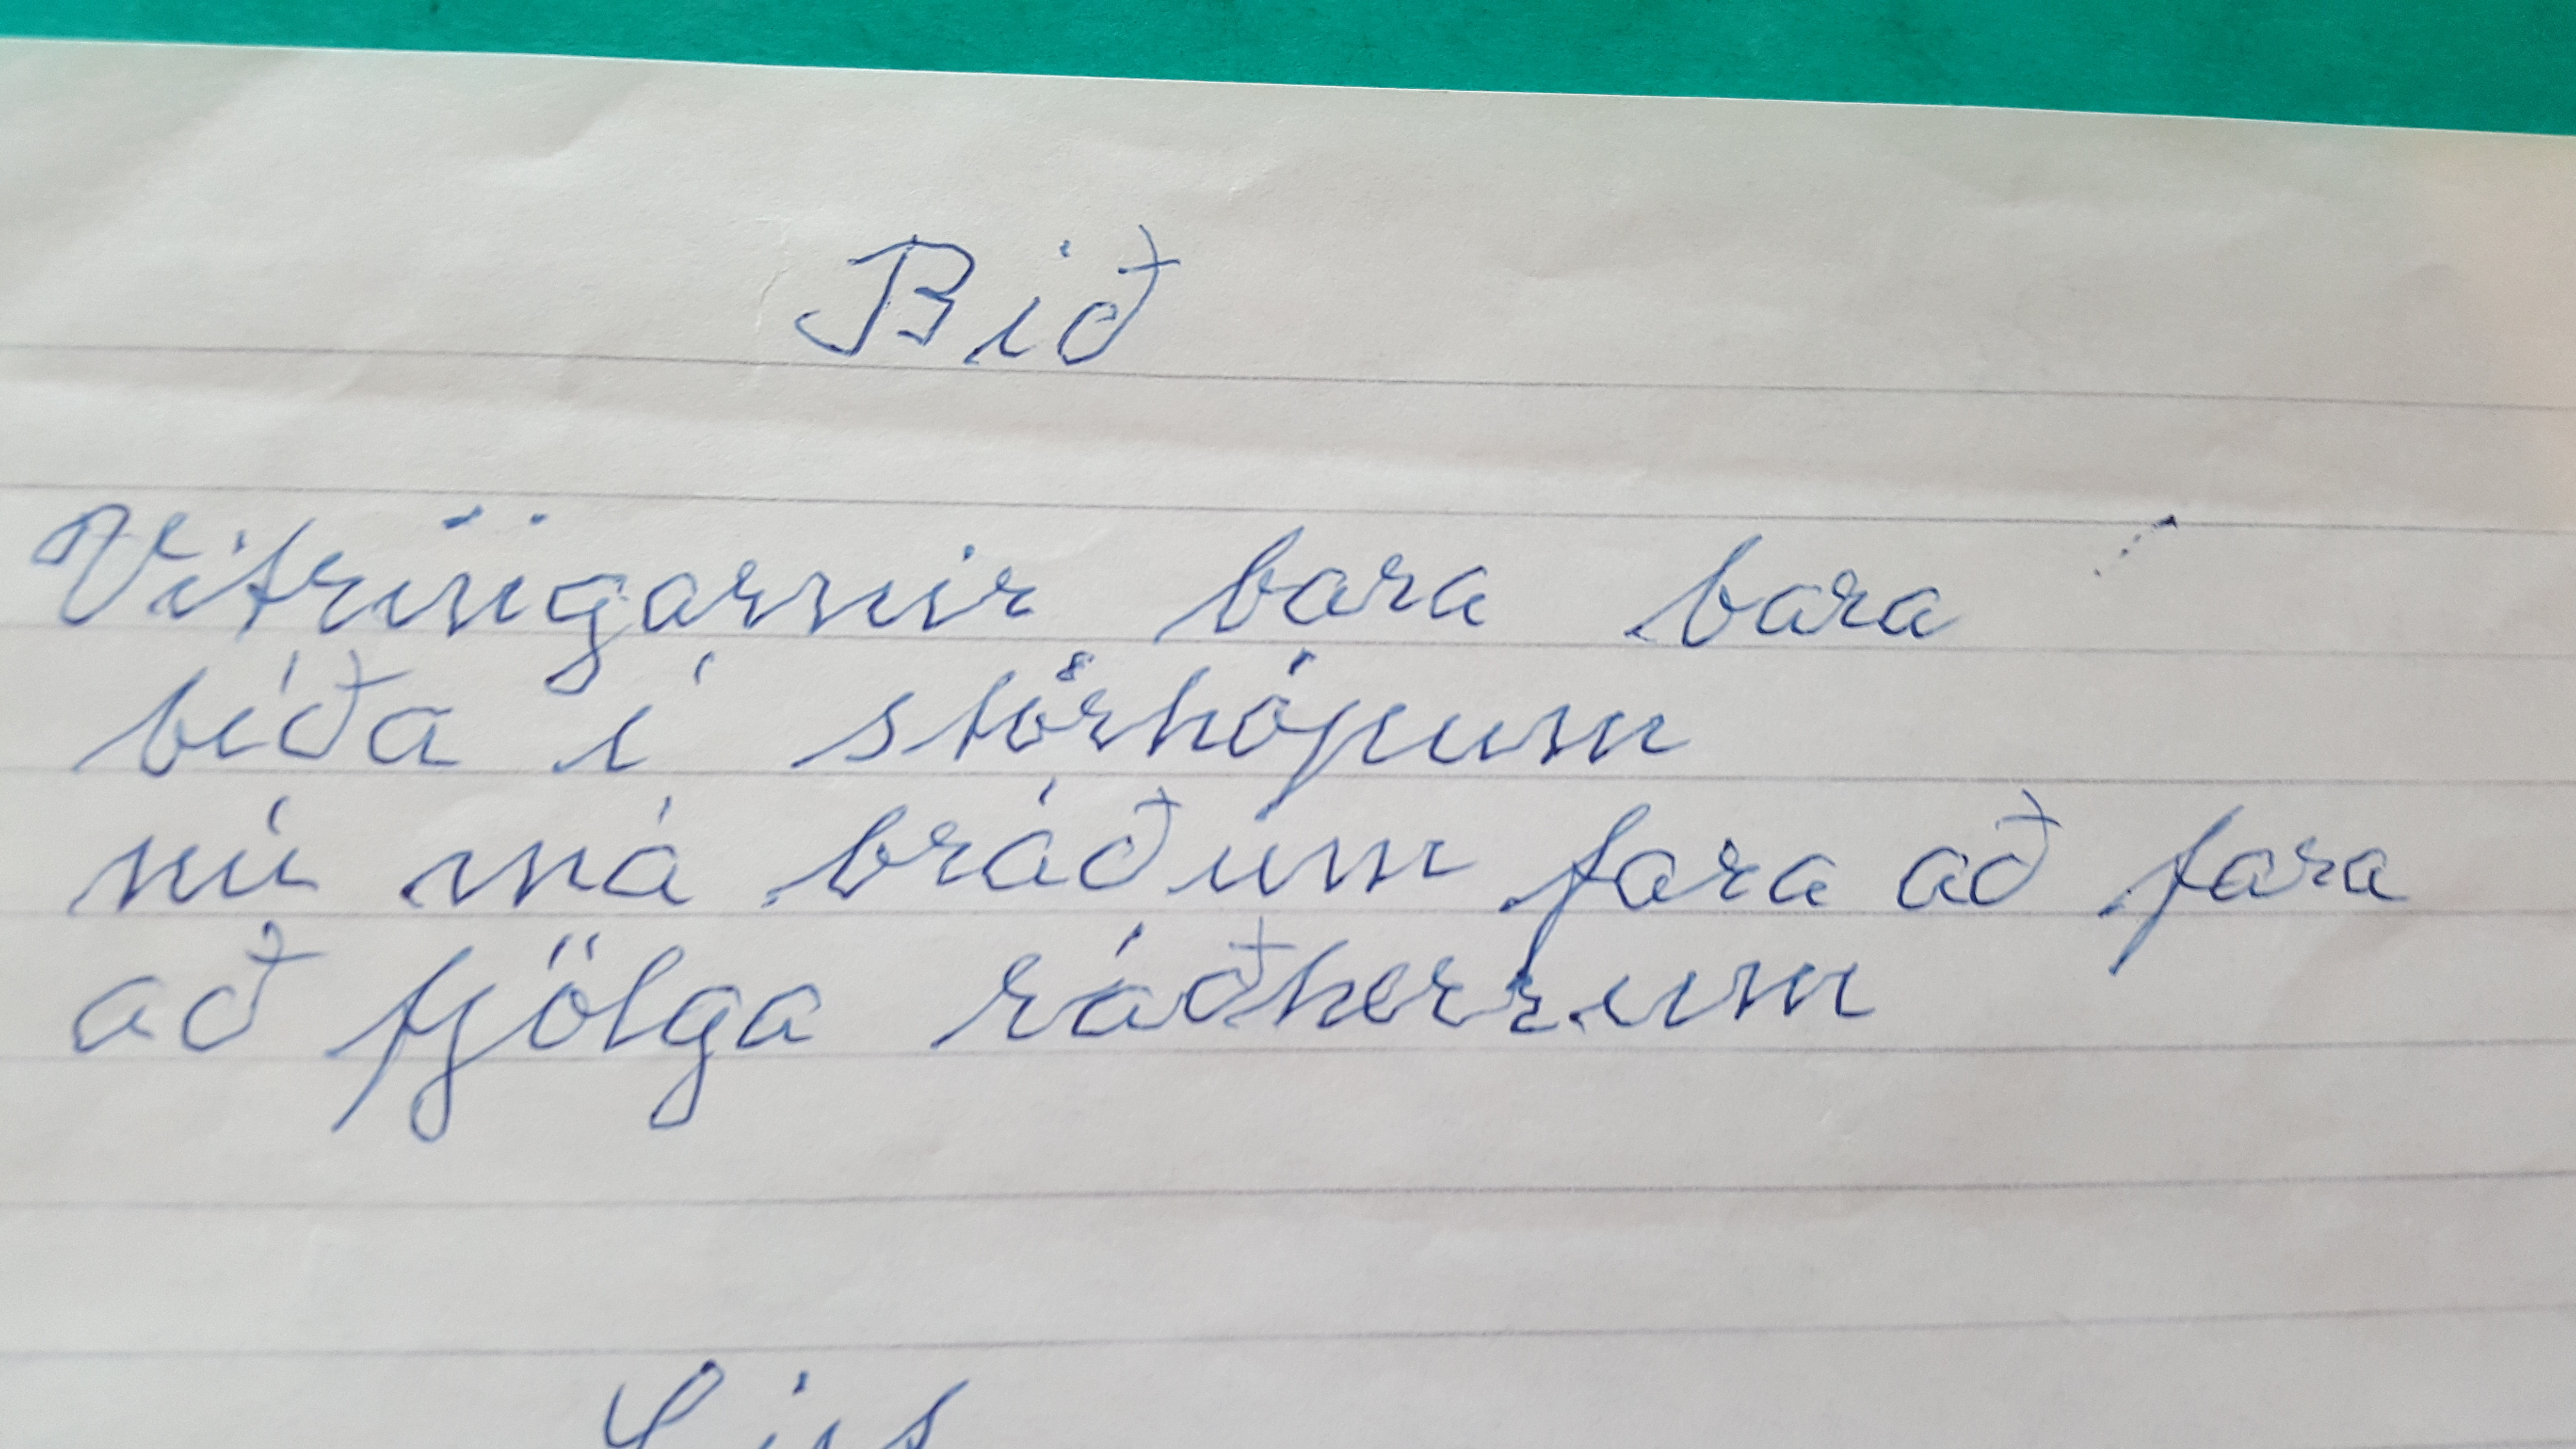 Bið
Vitringarnir bara bara
bíða í stórhópum
nú má bráðum fara að fara
að fjölga ráðherrum